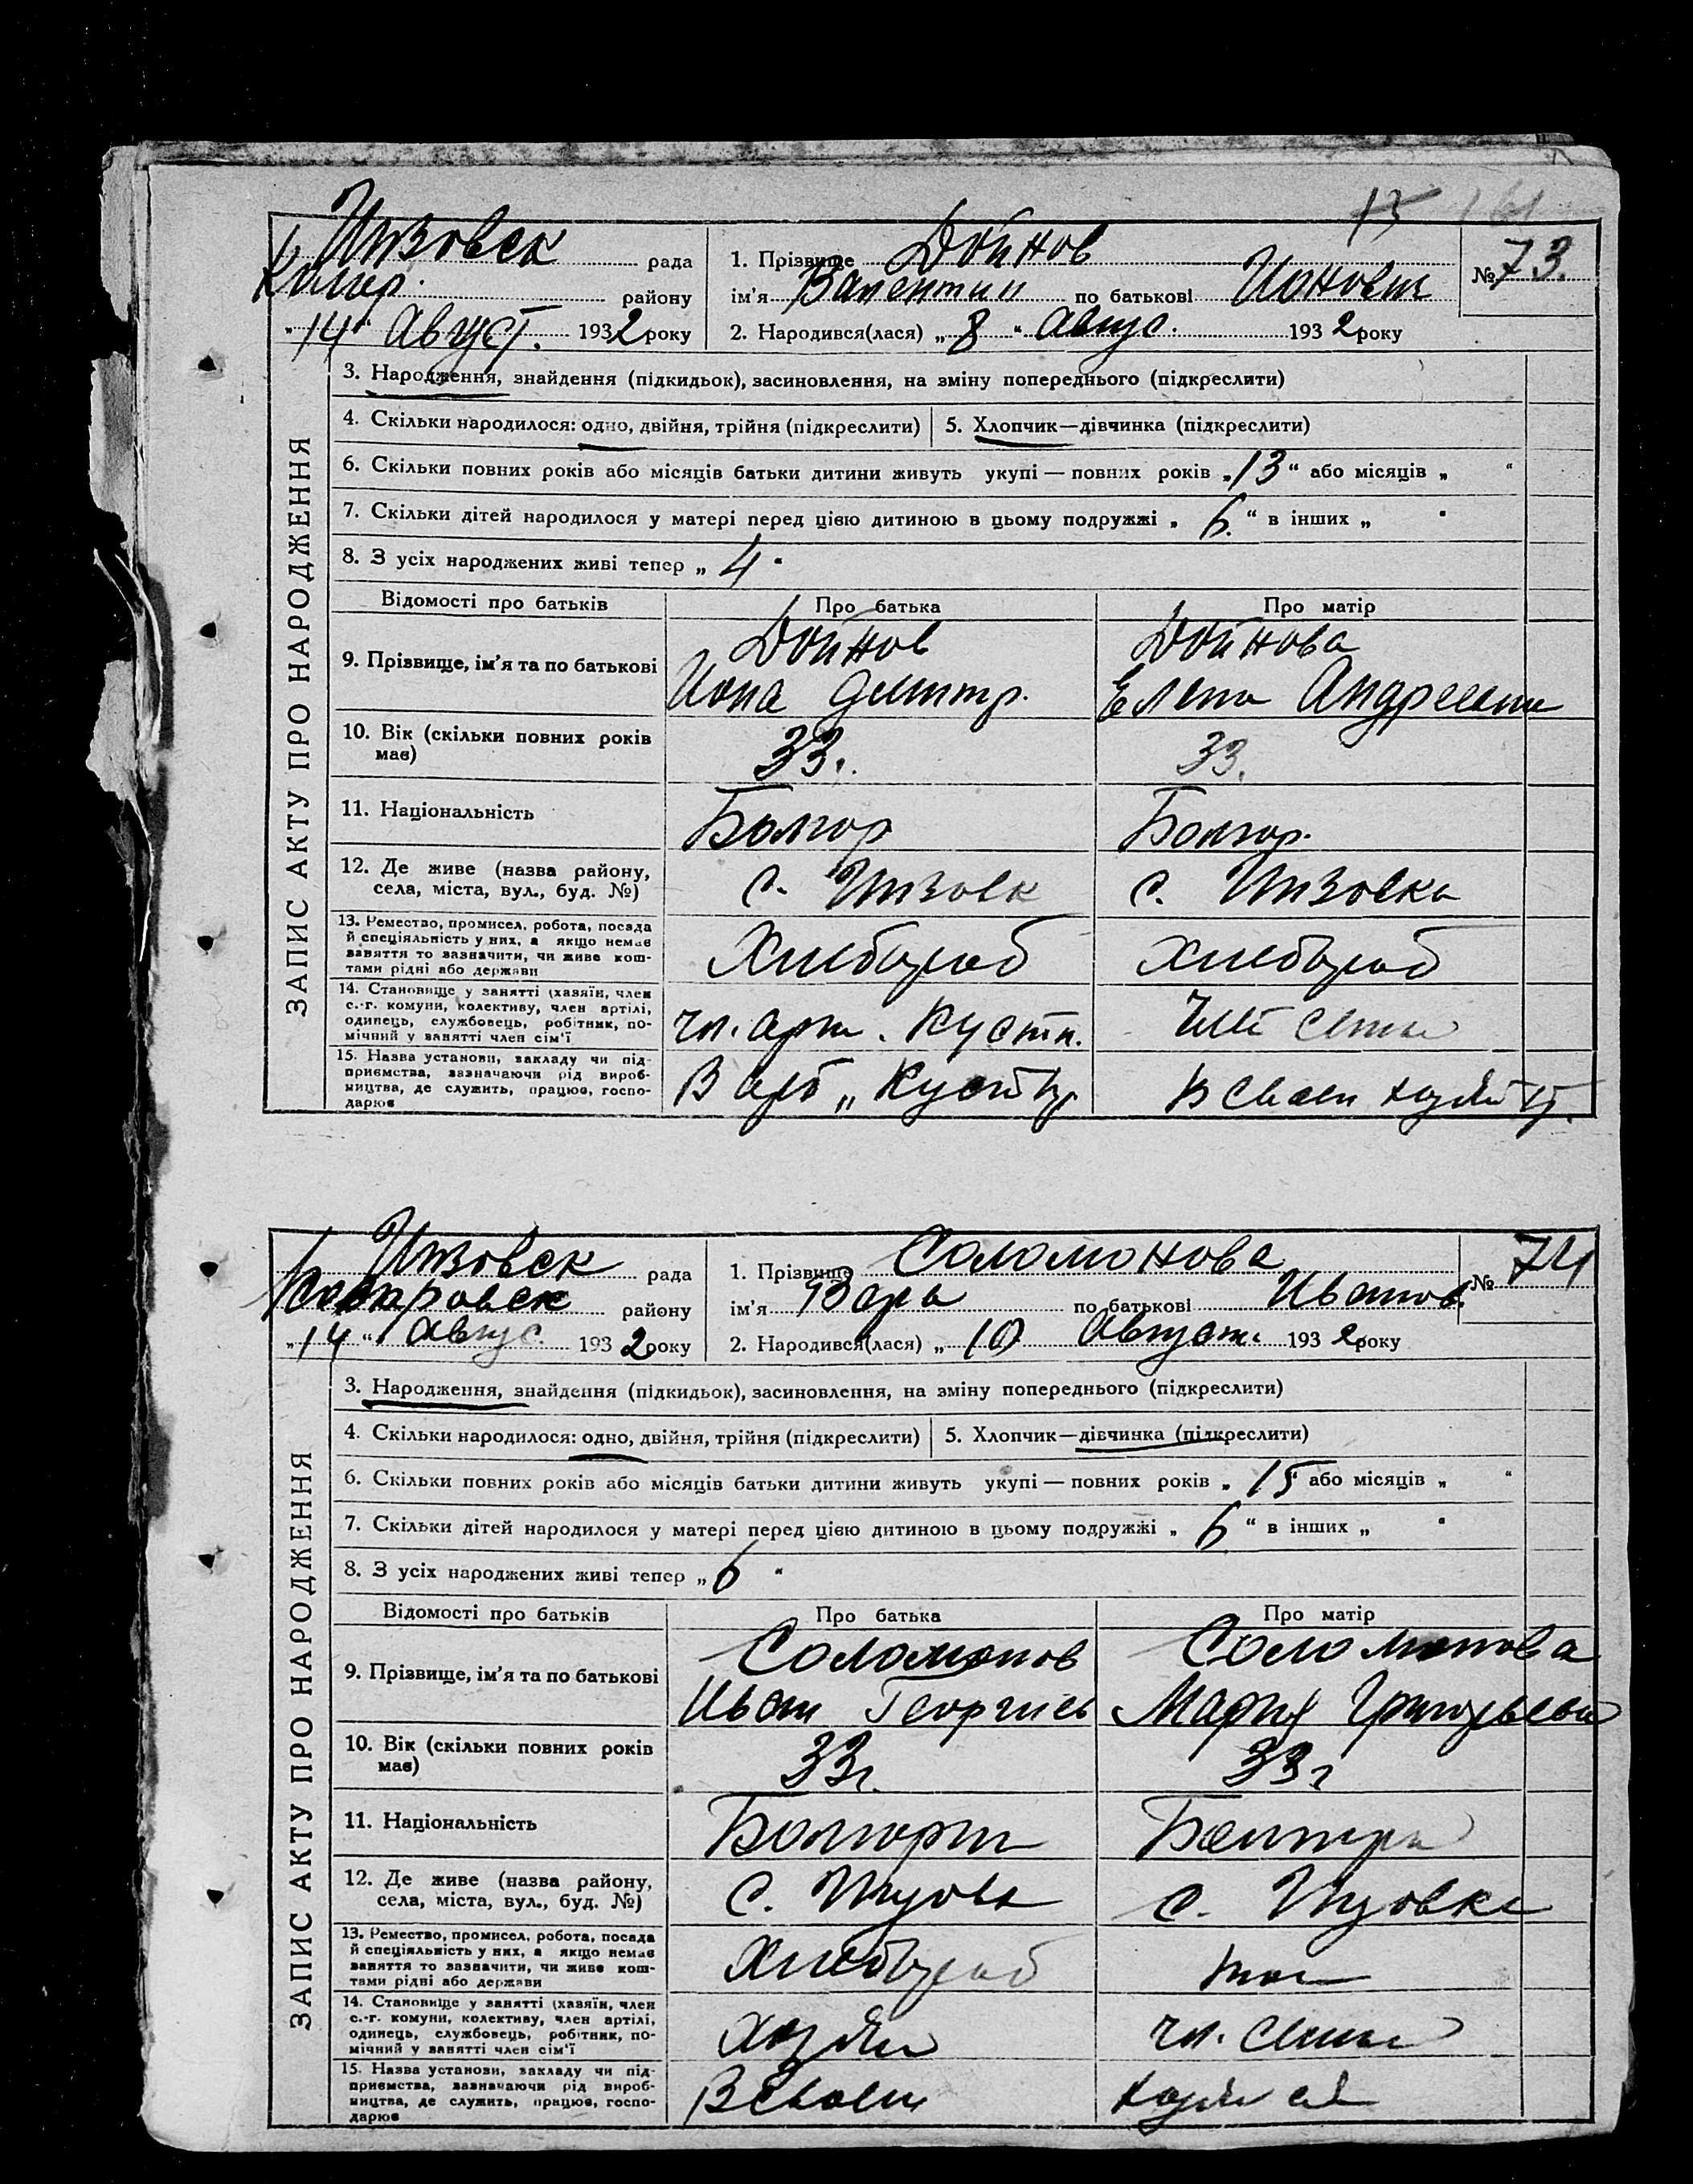 13 161
Инзовск рада
Комар. району
"14" Август. 1932 року
1. Прізвище Дойнов
ім'я Валентин по батькові Ионович
2. Народився(лася) „8" Авгус. 1932 року
№ 73.
ЗАПИС АКТУ ПРО НАРОДЖЕННЯ
3. Народження, знайдення (підкидьок), засиновлення, на зміну попереднього (підкреслити)
4. Скільки народилося: одно, двійня, трійня (підкреслити) 5. Хлопчик—дівчинка (підкреслити)
6. Скільки повних років або місяців батьки дитини живуть укупі — повних років „13" або місяців „ "
7. Скільки дітей народилося у матері перед цією дитиною в цьому подружжі „6." в інших „ "
8. З усіх народжених живі тепер „4"
Відомості про батьків Про батька Про матір
9. Прізвище, ім'я та по батькові Дойнов Дойнова
Иона Димитр. Елена Андреевна
10. Вік (скільки повних років має) 33. 33.
11. Національність Болгар Болгар.
12. Де живе (назва району, села, міста, вул., буд. №) с. Инзовк с. Инзовка
13. Ремество, промисел, робота, посада й спеціяльність у них, а якщо немає заняття то зазначити, чи живе коштами рідні або держави Хлебороб Хлебороб
14. Становище у занятті (хазяїн, член с.-г. комуни, колективу, член артілі, одинець, службовець, робітник, помічний у занятті член сім'ї чл. арт. Кустп. Член семьи
15. Назва установи, закладу чи підприємства, зазначаючи рід виробництва, де служить, працює, господарює В арт „ В своем хозяйст.
Инзовск рада
району
„14" Авгус. 1932 року
1. Прізвище Соломонова
ім'я Вера по батькові Иванов.
2. Народився(лася) „10 Август. 1932 року
№ 74
ЗАПИС АКТУ ПРО НАРОДЖЕННЯ
3. Народження, знайдення (підкидьок), засиновлення, на зміну попереднього (підкреслити)
4. Скільки народилося: одно, двійня, трійня (підкреслити) 5. Хлопчик—дівчинка (підкреслити)
6. Скільки повних років або місяців батьки дитини живуть укупі — повних років „15" або місяців „ "
7. Скільки дітей народилося у матері перед цією дитиною в цьому подружжі „6" в інших „ "
8. З усіх народжених живі тепер „6 "
Відомості про батьків Про батька Про матір
9. Прізвище, ім'я та по батькові Соломонов Соломонова
Иван Георгиев Мария Григорьевна
10. Вік (скільки повних років має) 33г. 33г
11. Національність Болгарин Болгарка
12. Де живе (назва району, села, міста, вул., буд. №) с. Инзовк с. Инзовка
13. Ремество, промисел, робота, посада й спеціяльність у них, а якщо немає заняття то зазначити, чи живе коштами рідні або держави Хлебороб
14. Становище у занятті (хазяїн, член с.-г. комуни, колективу, член артілі, одинець, службовець, робітник, помічний у занятті член сім'ї Хозяин чл. семьи
15. Назва установи, закладу чи підприємства, зазначаючи рід виробництва, де служить, працює, господарює В своем